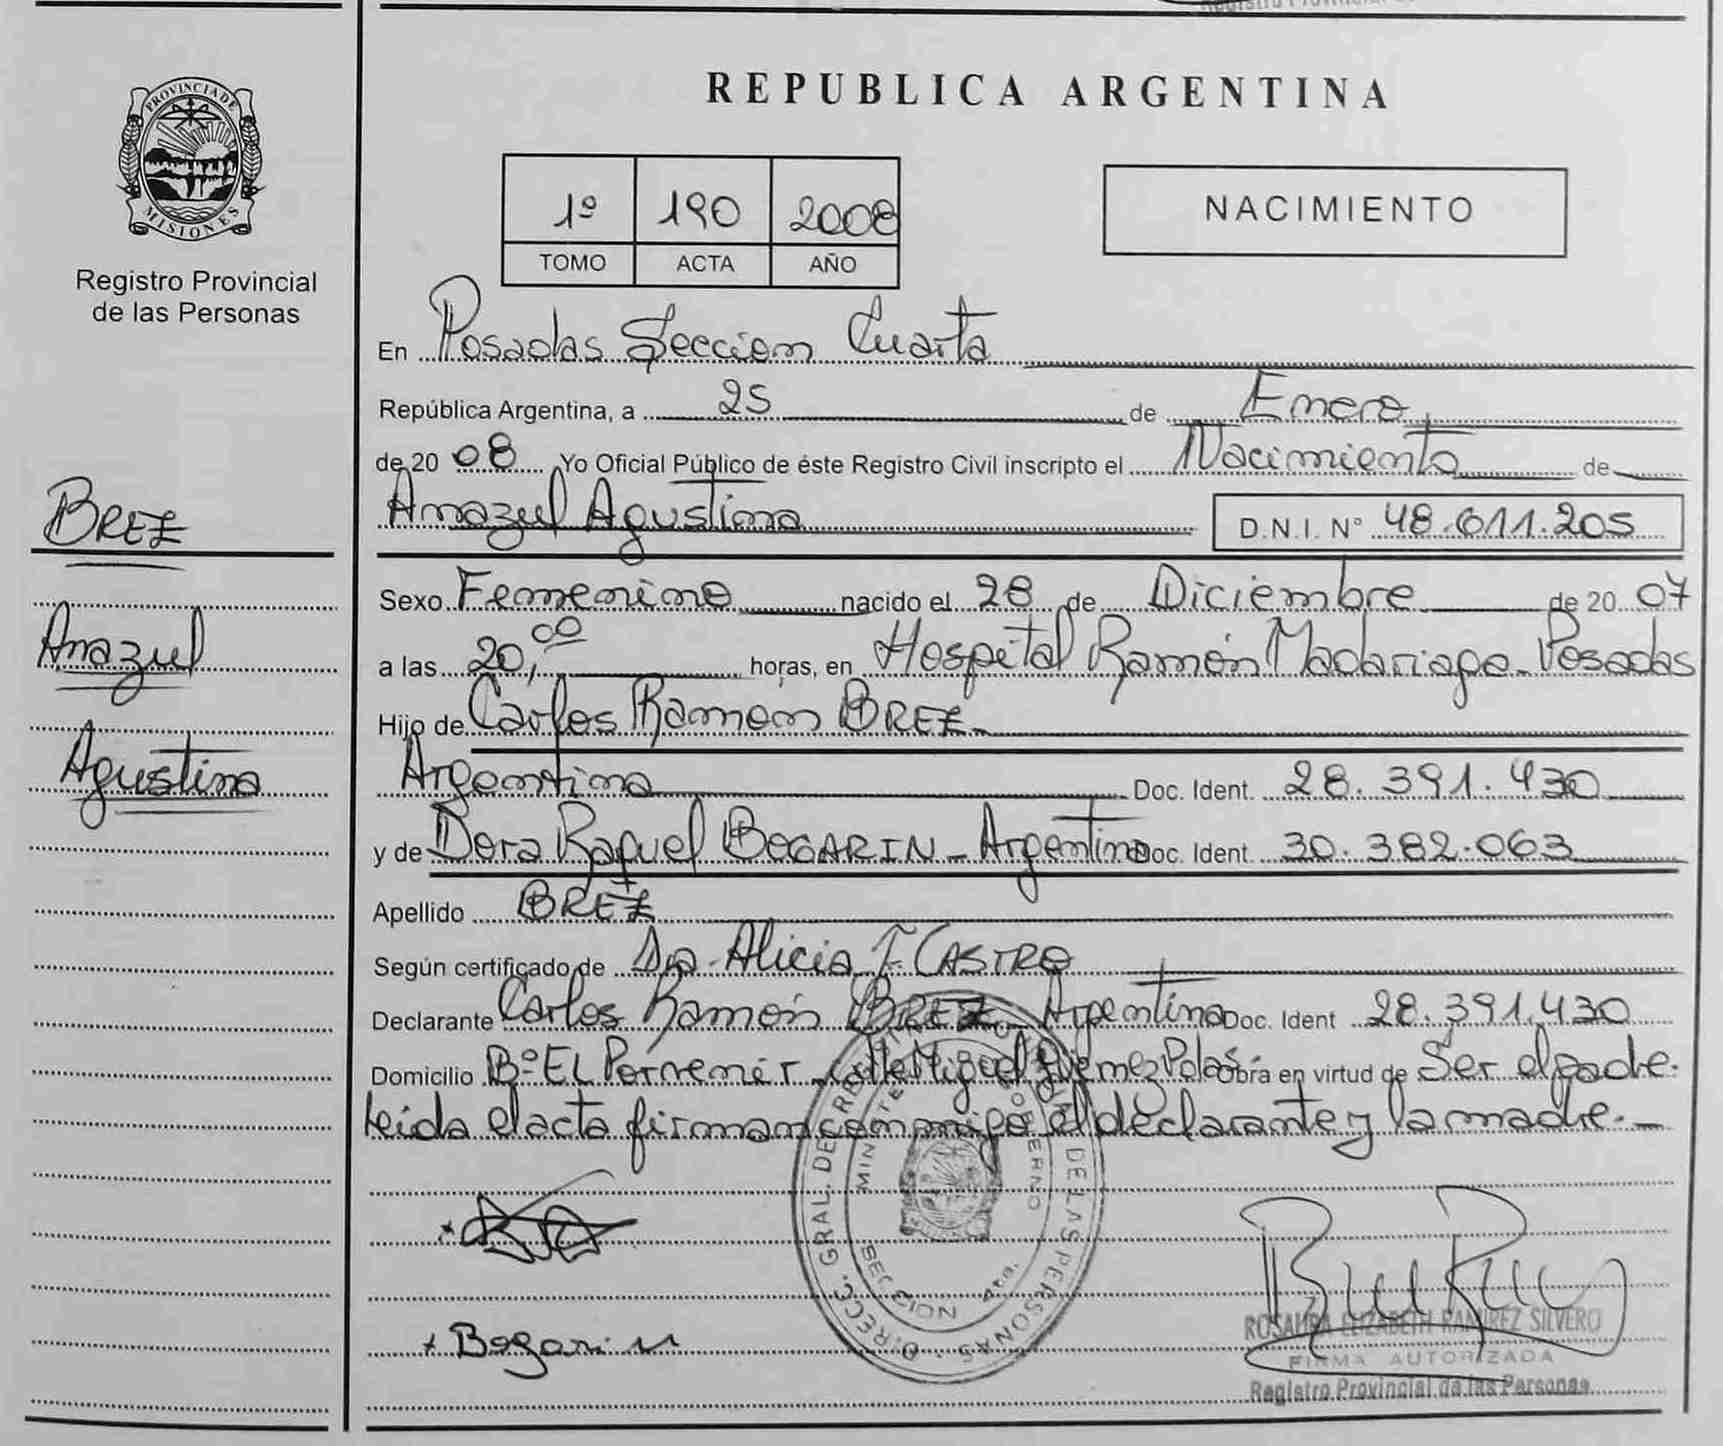 REPUBLICA ARGENTINA
PROVINCIA DE
MISIONES
Registro Provincial
de las Personas
1º 190 2008
TOMO ACTA AÑO
NACIMIENTO
En Posadas Seccion Cuarta
República Argentina, a 25 de Enero
de 20 08 Yo Oficial Público de éste Registro Civil inscripto el Nacimiento de
Anazul Agustina D.N.I. N° 48.611.205
BREZ
Anazul
Agustina
Sexo Femenino nacido el 28 de Diciembre de 20 07
a las 20,00 horas, en Hospital Ramón Madariaga - Posadas
Hijo de Carlos Ramon BREZ
Argentina Doc. Ident. 28.391.430
y de Dora Raquel BOGARIN - Argentina Doc. Ident. 30.382.063
Apellido BREZ
Según certificado de Dra. Alicia F. CASTRO
Declarante Carlos Ramón BREZ - Argentina Doc. Ident 28.391.430
Domicilio Bº EL Porvenir - Calle Miguel Guemez Pdas Obra en virtud de Ser el padre.
leida el acta firman conmigo el declarante y la madre.-
DIRECC. GRAL. DE REG. DE LAS PERSONAS
MINISTERIO GOBIERNO
SECCION 4ta.
x Bogarin
ROSAURA ELIZABETH RAMIREZ SILVERO
FIRMA AUTORIZADA
Registro Provincial de las Personas